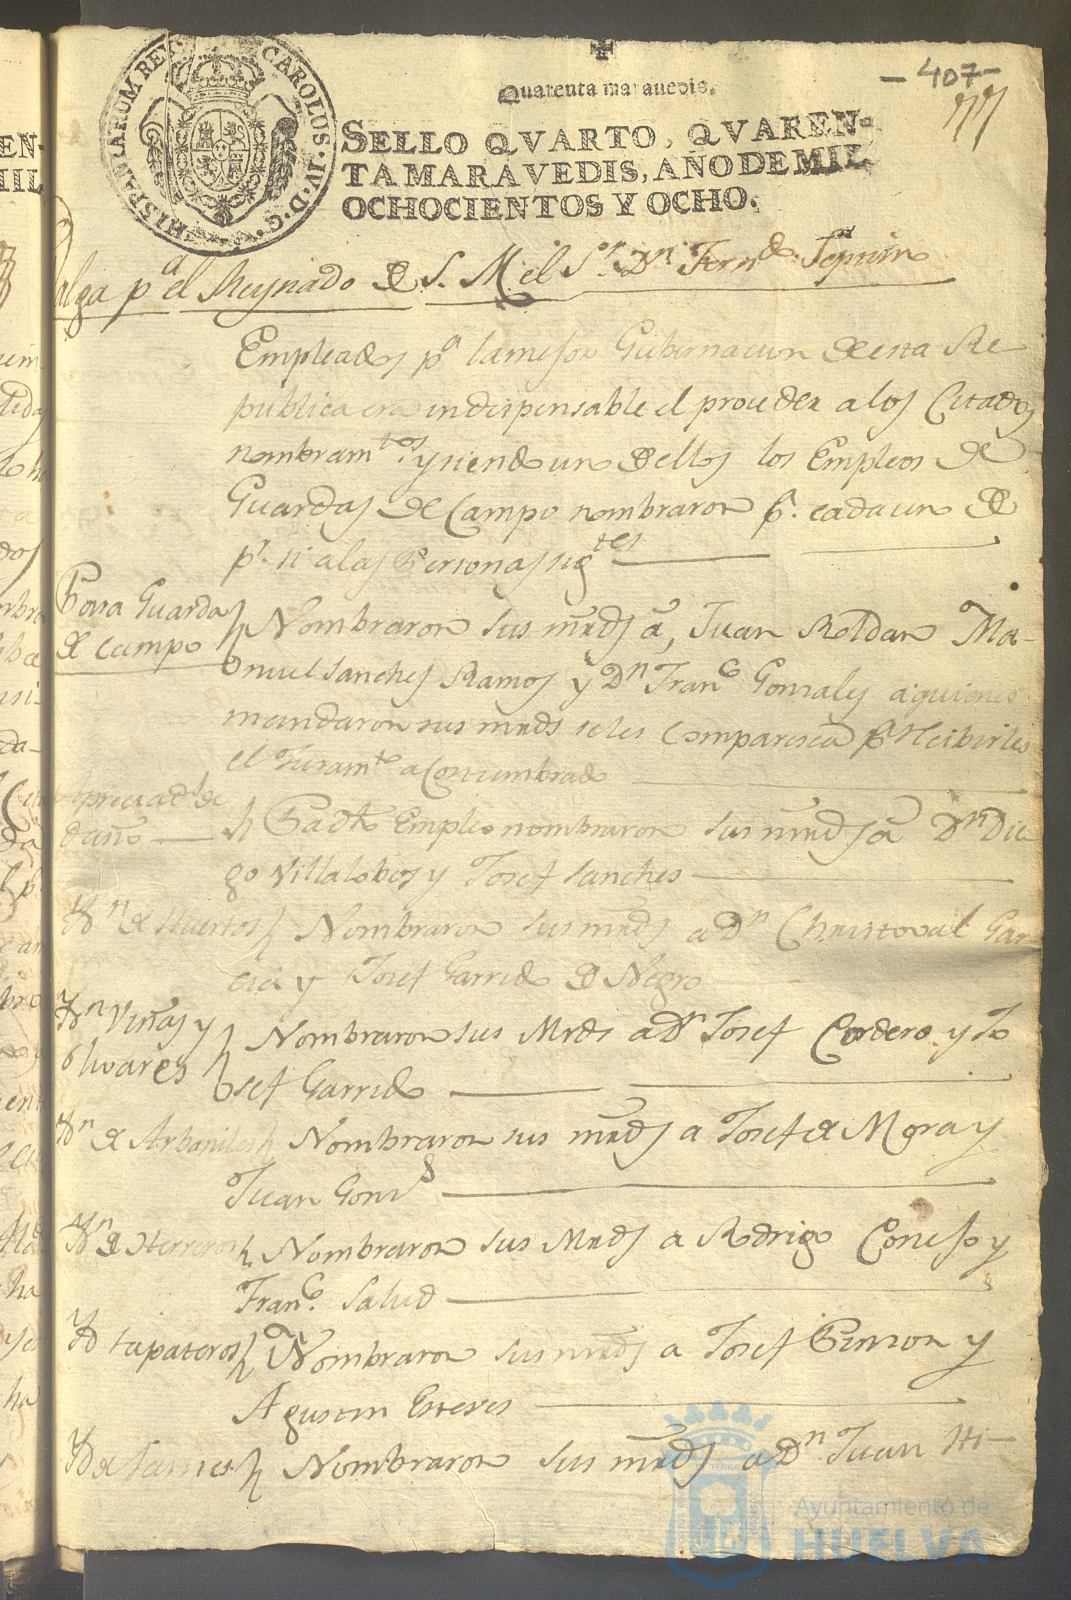 HISPANIARUM REX. CAROLUS. IV. D. G.
-407-
Quarenta maravedis.
SELLO QVARTO, QVAREN-
TA MARAVEDIS, AÑO DE MIL
OCHOCIENTOS Y OCHO.
Valga pª el Reynado de S. M. el Sr. Dn. Fernd. Septimo
Empleados pª la mejor Gubernacion de esta Re
publica era indispensable el proceder a los Citados
nombramtos. y siendo uno de ellos los Empleos de
Guardas de Campo nombraron pr. cada uno de
pr. si a las Personas sigtes
Para Guarda
de campo
Nombraron sus mrds a, Juan Roldan Ma-
nuel Sanches Ramos y Dn Franco Gonzales a quienes
mandaron sus mrds se les Comparesca pª Recibirles
el Juramto acostumbrado
Apreciads de
daño
Pª dho Empleo nombraron sus mrds a Dn Die
go Villalobos y Josef Sanches
Yn de Huertos
Nombraron sus mrds a Dn Christoval Gar
cia y Josef Garrido de Negro
Yn Viñas y
Olivares
Nombraron sus Mrds a Dn Josef Cordero y Jo
sef Garrido
Yn de Arbaniles
Nombraron sus mrds a Josef de Mora y
Juan Gonzs
Yn de Herreros
Nombraron sus Mrds a Rodrigo Conejo y
Franco. Salud
Yd Zapateros
Nombraron sus mrds a Josef Pinzon y
Agustin Esteves
Yd de Sastres
Nombraron sus mrds a Dn Juan Hi-
Ayuntamiento de
HUELVA